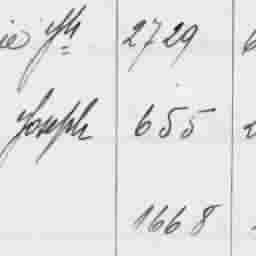 Jh 2729
Joseph 655
1668